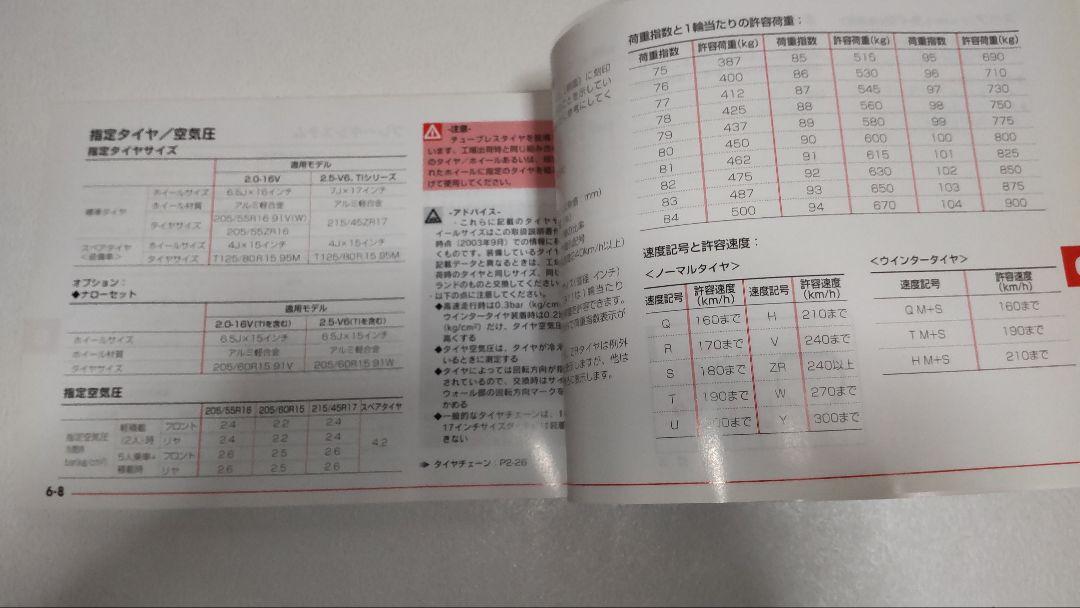 指定タイヤ/空気圧
指定タイヤサイズ
適用モデル
2.0-16V 2.5-V6、TIシリーズ
標準タイヤ ホイールサイズ 6.5J×16インチ 7J×17インチ
ホイール材質 アルミ軽合金 アルミ軽合金
タイヤサイズ 205/55R16 91V(W) 215/45ZR17
205/55ZR16
スペアタイヤ ホイールサイズ 4J×15インチ 4J×15インチ
<装備車> タイヤサイズ T125/80R15 95M T125/80R15 95M
オプション:
◆ナローセット
適用モデル
2.0-16V(TIを含む) 2.5-V6(TIを含む)
ホイールサイズ 6.5J×15インチ 6.5J×15インチ
ホイール材質 アルミ軽合金 アルミ軽合金
タイヤサイズ 205/60R15 91V 205/60R15 91W
指定空気圧
205/55R16 205/60R15 215/45R17 スペアタイヤ
指定空気圧 軽積載 フロント 2.4 2.2 2.4 4.2
(2人)時 リヤ 2.4 2.2 2.4
5人乗車+ フロント 2.6 2.5 2.6
積載時 リヤ 2.6 2.5 2.6
6-8
-注意-
チューブレスタイヤを装備
います。工場出荷時と同じ組み合
のタイヤ/ホイールあるいは、
れたホイールに指定のタイヤを
けて使用してください。
-アドバイス-
・これらに記載のタイヤサ
イールサイズはこの取扱説明書
時点(2003年9月)での情報に
くものです。装備しているタイヤ
記載データと異なるときは、工
荷時のタイヤと同じサイズ、同じ
ランドのものと交換してください
・以下の点に注意してください。
◆高速走行時は0.3bar(kg/cm
ウインタータイヤ装着時は0.2
(kg/cm²)だけ、タイヤ空気圧
高くする
◆タイヤ空気圧は、タイヤが冷え
いるときに測定する
◆タイヤによっては回転方向が指
されているので、交換時はサイ
ウォール部の回転方向マークを
かめる
◆一般的なタイヤチェーンは、
17インチサイズ
きない
タイヤチェーン:P2-26
荷重指数と1輪当たりの許容荷重:
荷重指数 許容荷重(kg) 荷重指数 許容荷重(kg) 荷重指数 許容荷重(kg)
75 387 85 515 95 690
76 400 86 530 96 710
77 412 87 545 97 730
78 425 88 560 98 750
79 437 89 580 99 775
80 450 90 600 100 800
81 462 91 615 101 825
82 475 92 630 102 850
83 487 93 650 103 875
84 500 94 670 104 900
速度記号と許容速度:
<ノーマルタイヤ>
速度記号 許容速度(km/h) 速度記号 許容速度(km/h)
Q 160まで H 210まで
R 170まで V 240まで
S 180まで ZR 240以上
T 190まで W 270まで
U 200まで Y 300まで
<ウインタータイヤ>
速度記号 許容速度(km/h)
Q M+S 160まで
T M+S 190まで
H M+S 210まで